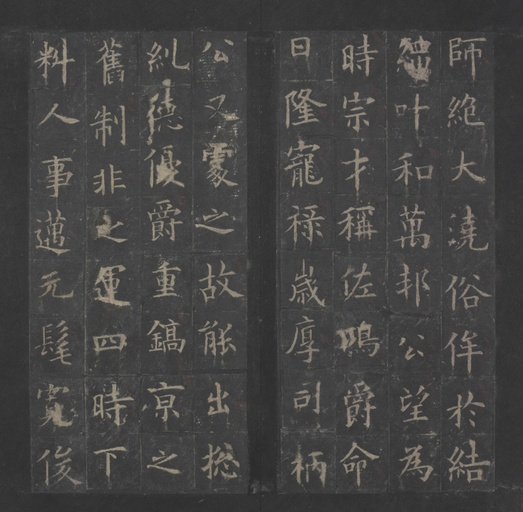 師絶大澆俗侔於結
繩叶和萬邦公望為
時宗才稱佐鳴爵命
日隆寵禄歳厚司柄
公又蒙之故能出捴
糺德優爵重鎬京之
舊制非之運四時下
料人事邁元髦寔俊